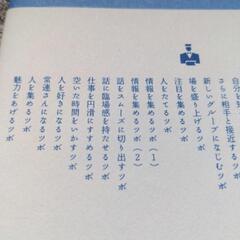 自分を
さらに相手と接近するツボ
新しいグループになじむツボ
場を盛り上げるツボ
注目を集めるツボ
人をたてるツボ
情報を集めるツボ（1）
情報を集めるツボ（2）
話をスムーズに切り出すツボ
話に臨場感を持たせるツボ
仕事を円滑にすすめるツボ
空いた時間をいかすツボ
人を好きになるツボ
常連さんになるツボ
人を集めるツボ
魅力をあげるツボ